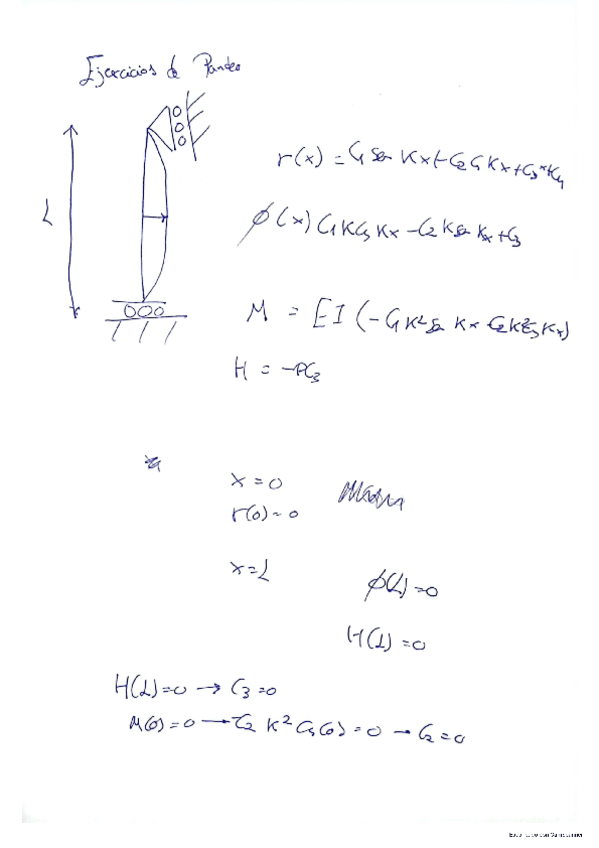 Ejercicios de Pandeo
L
r(x) = C1 sen Kx + C2 Cs Kx + C3 x + C4
ϕ(x) C1 K Cs Kx - C2 K sen Kx + C3
M = EI (-C1 K² sen Kx - C2 K² Cs Kx)
H = -PC3
x = 0
r(0) = 0
x = L
ϕ(L) = 0
H(L) = 0
H(L) = 0 → C3 = 0
M(0) = 0 → -C2 K² Cs(0) = 0 → C2 = 0